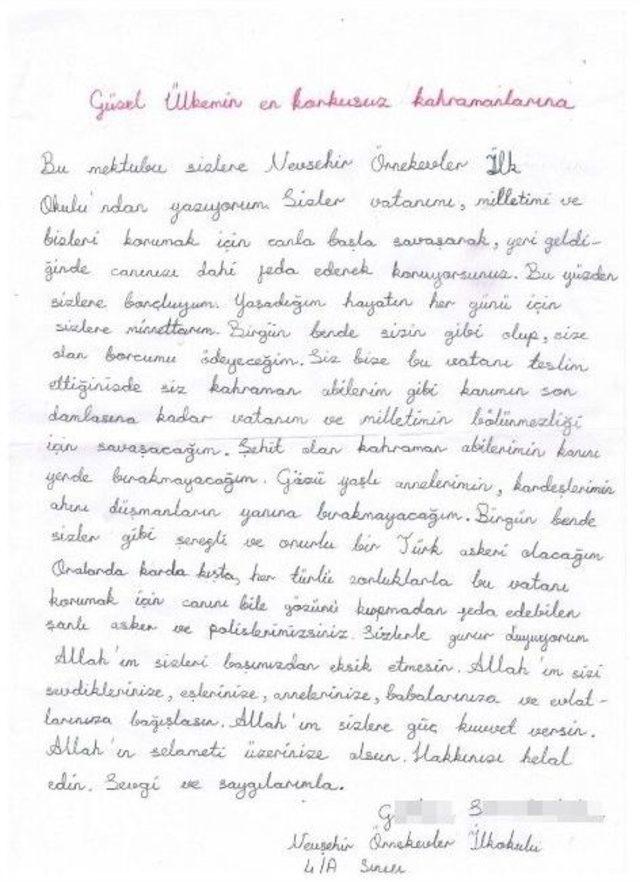 Güzel Ülkemin en korkusuz kahramanlarına
Bu mektubu sizlere Nevşehir Örnekevler İlk
Okulu'ndan yazıyorum. Sizler vatanımı, milletimi ve
bizleri korumak için canla başla savaşarak, yeri geldi-
ğinde canınızı dahi feda ederek koruyorsunuz. Bu yüzden
sizlere borçluyum. Yaşadığım hayatın her günü için
sizlere minnettarım. Birgün bende sizin gibi olup, size
olan borcumu ödeyeceğim. Siz bize bu vatanı teslim
ettiğinizde siz kahraman abilerim gibi kanımın son
damlasına kadar vatanım ve milletimin bölünmezliği
için savaşacağım. Şehit olan kahraman abilerimin kanını
yerde bırakmayacağım. Gözü yaşlı annelerimin, kardeşlerimin
ahını düşmanların yanına bırakmayacağım. Birgün bende
sizler gibi şerefli ve onurlu bir Türk askeri olacağım
Oralarda karda kışta, her türlü zorluklarla bu vatanı
korumak için canını bile gözünü kırpmadan feda edebilen
şanlı asker ve polislerimizsiniz. Sizlerle gurur duyuyorum
Allah'ım sizleri başımızdan eksik etmesin. Allah'ım sizi
sevdiklerinize, eşlerinize, annelerinize, babalarınıza ve evlat-
larınıza bağışlasın. Allah'ım sizlere güç kuvvet versin.
Allah'ın selameti üzerinize olsun. Hakkınızı helal
edin. Sevgi ve saygılarımla.
G
Nevşehir Örnekevler İlkokulu
4/A Sınıfı